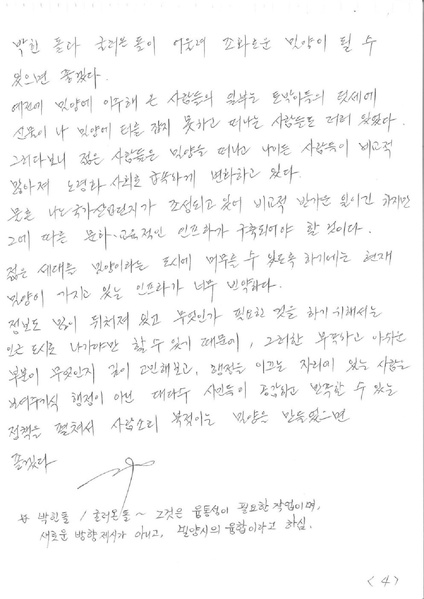 박힌 돌과 굴러온 돌이 어울려 조화로운 밀양이 될 수
있으면 좋겠다.
예전에 밀양에 이주해 온 사람들의 일부는 토박이들의 텃세에
나 밀양에 터를 잡지 못하고 떠나는 사람들도 더러 있었다.
그러다보니 젊은 사람들은 밀양을 떠나고 나이든 사람들이 비교적
많아져 노령화 사회로 급속하게 변화하고 있다.
물론 나노국가산업단지가 조성되고 있어 비교적 반가운 일이긴 하지만
그에 따른 문화·교육적인 인프라가 구축되어야 할 것이다.
젊은 세대를 밀양이라는 도시에 머무를 수 있도록 하기에는 현재
밀양이 가지고 있는 인프라가 너무 빈약하다.
정보도 많이 뒤처져 있고 무엇인가 필요한 것을 하기 위해서는
인근 도시로 나가야만 할 수 있기 때문에, 그러한 부족하고 아쉬운
부분이 무엇인지 깊이 고민해보고, 행정을 이끄는 자리에 있는 사람들
보여주기식 행정이 아닌 대다수 시민들이 공감하고 만족할 수 있는
정책을 펼쳐서 사람소리 북적이는 밀양을 만들었으면
좋겠다
# 박힌돌 / 굴러온돌 ~ 그것은 융통성이 필요한 작업이며,
새로운 방향제시가 아니고, 밀양시의 융합이라고 하심.
<4>